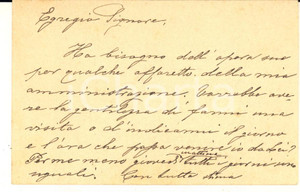 Egregio Signore,
Ha bisogno dell'opera sua
per qualche affaretto della mia
amministrazione. Vorrebbe ave-
re la gentilezza di farmi una
visita o d'indicarmi il giorno
e l'ora che possa venire io da lei?
mattina
Per me meno giovedì tutti i giorni sono
uguali. Con tutta stima